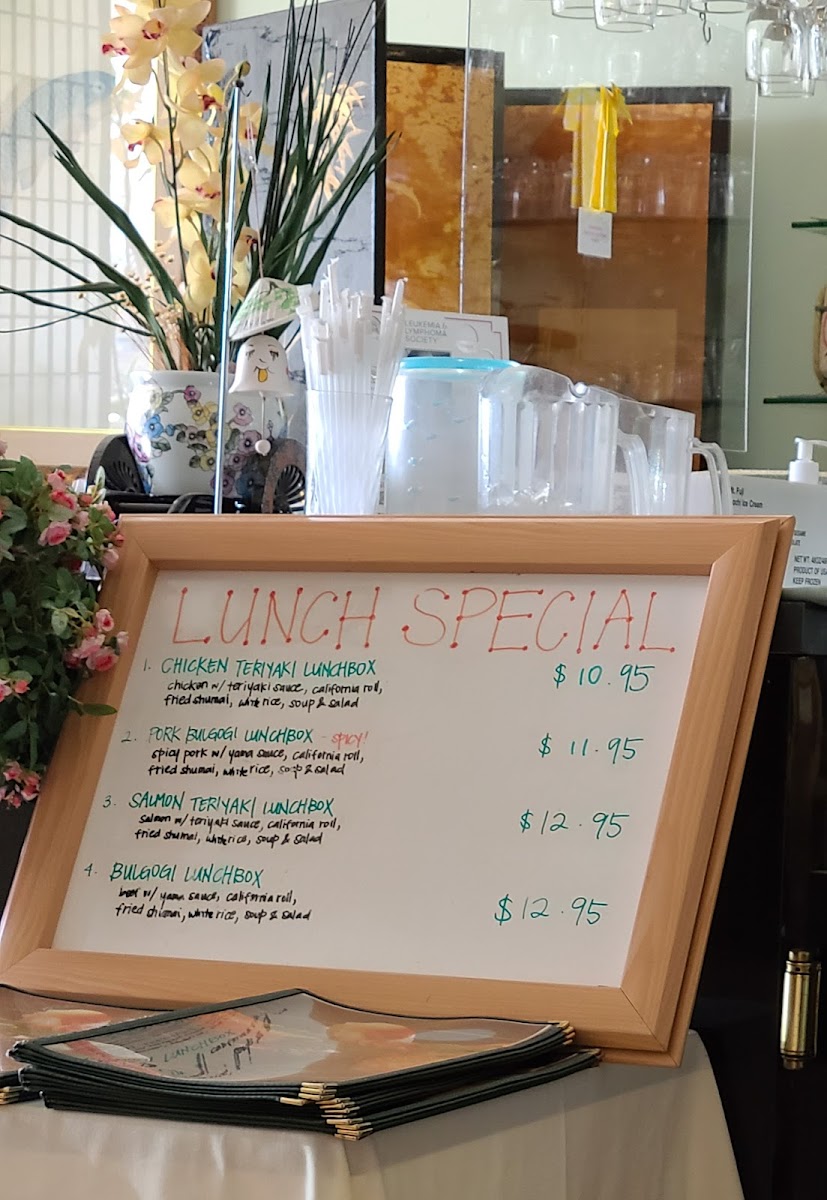 LEUKEMIA &
LYMPHOMA
SOCIETY
Mt. Fuji
Mochi Ice Cream
NET WT. 48OZ
PRODUCT OF USA
KEEP FROZEN
LUNCH SPECIAL
1. CHICKEN TERIYAKI LUNCHBOX $10.95
chicken w/ teriyaki sauce, california roll,
fried shumai, white rice, soup & salad
2. PORK BULGOGI LUNCHBOX - SPICY! $11.95
spicy pork w/ yama sauce, california roll,
fried shumai, white rice, soup & salad
3. SALMON TERIYAKI LUNCHBOX $12.95
salmon w/ teriyaki sauce, california roll,
fried shumai, white rice, soup & salad
4. BULGOGI LUNCHBOX $12.95
beef w/ yama sauce, california roll,
fried shumai, white rice, soup & salad